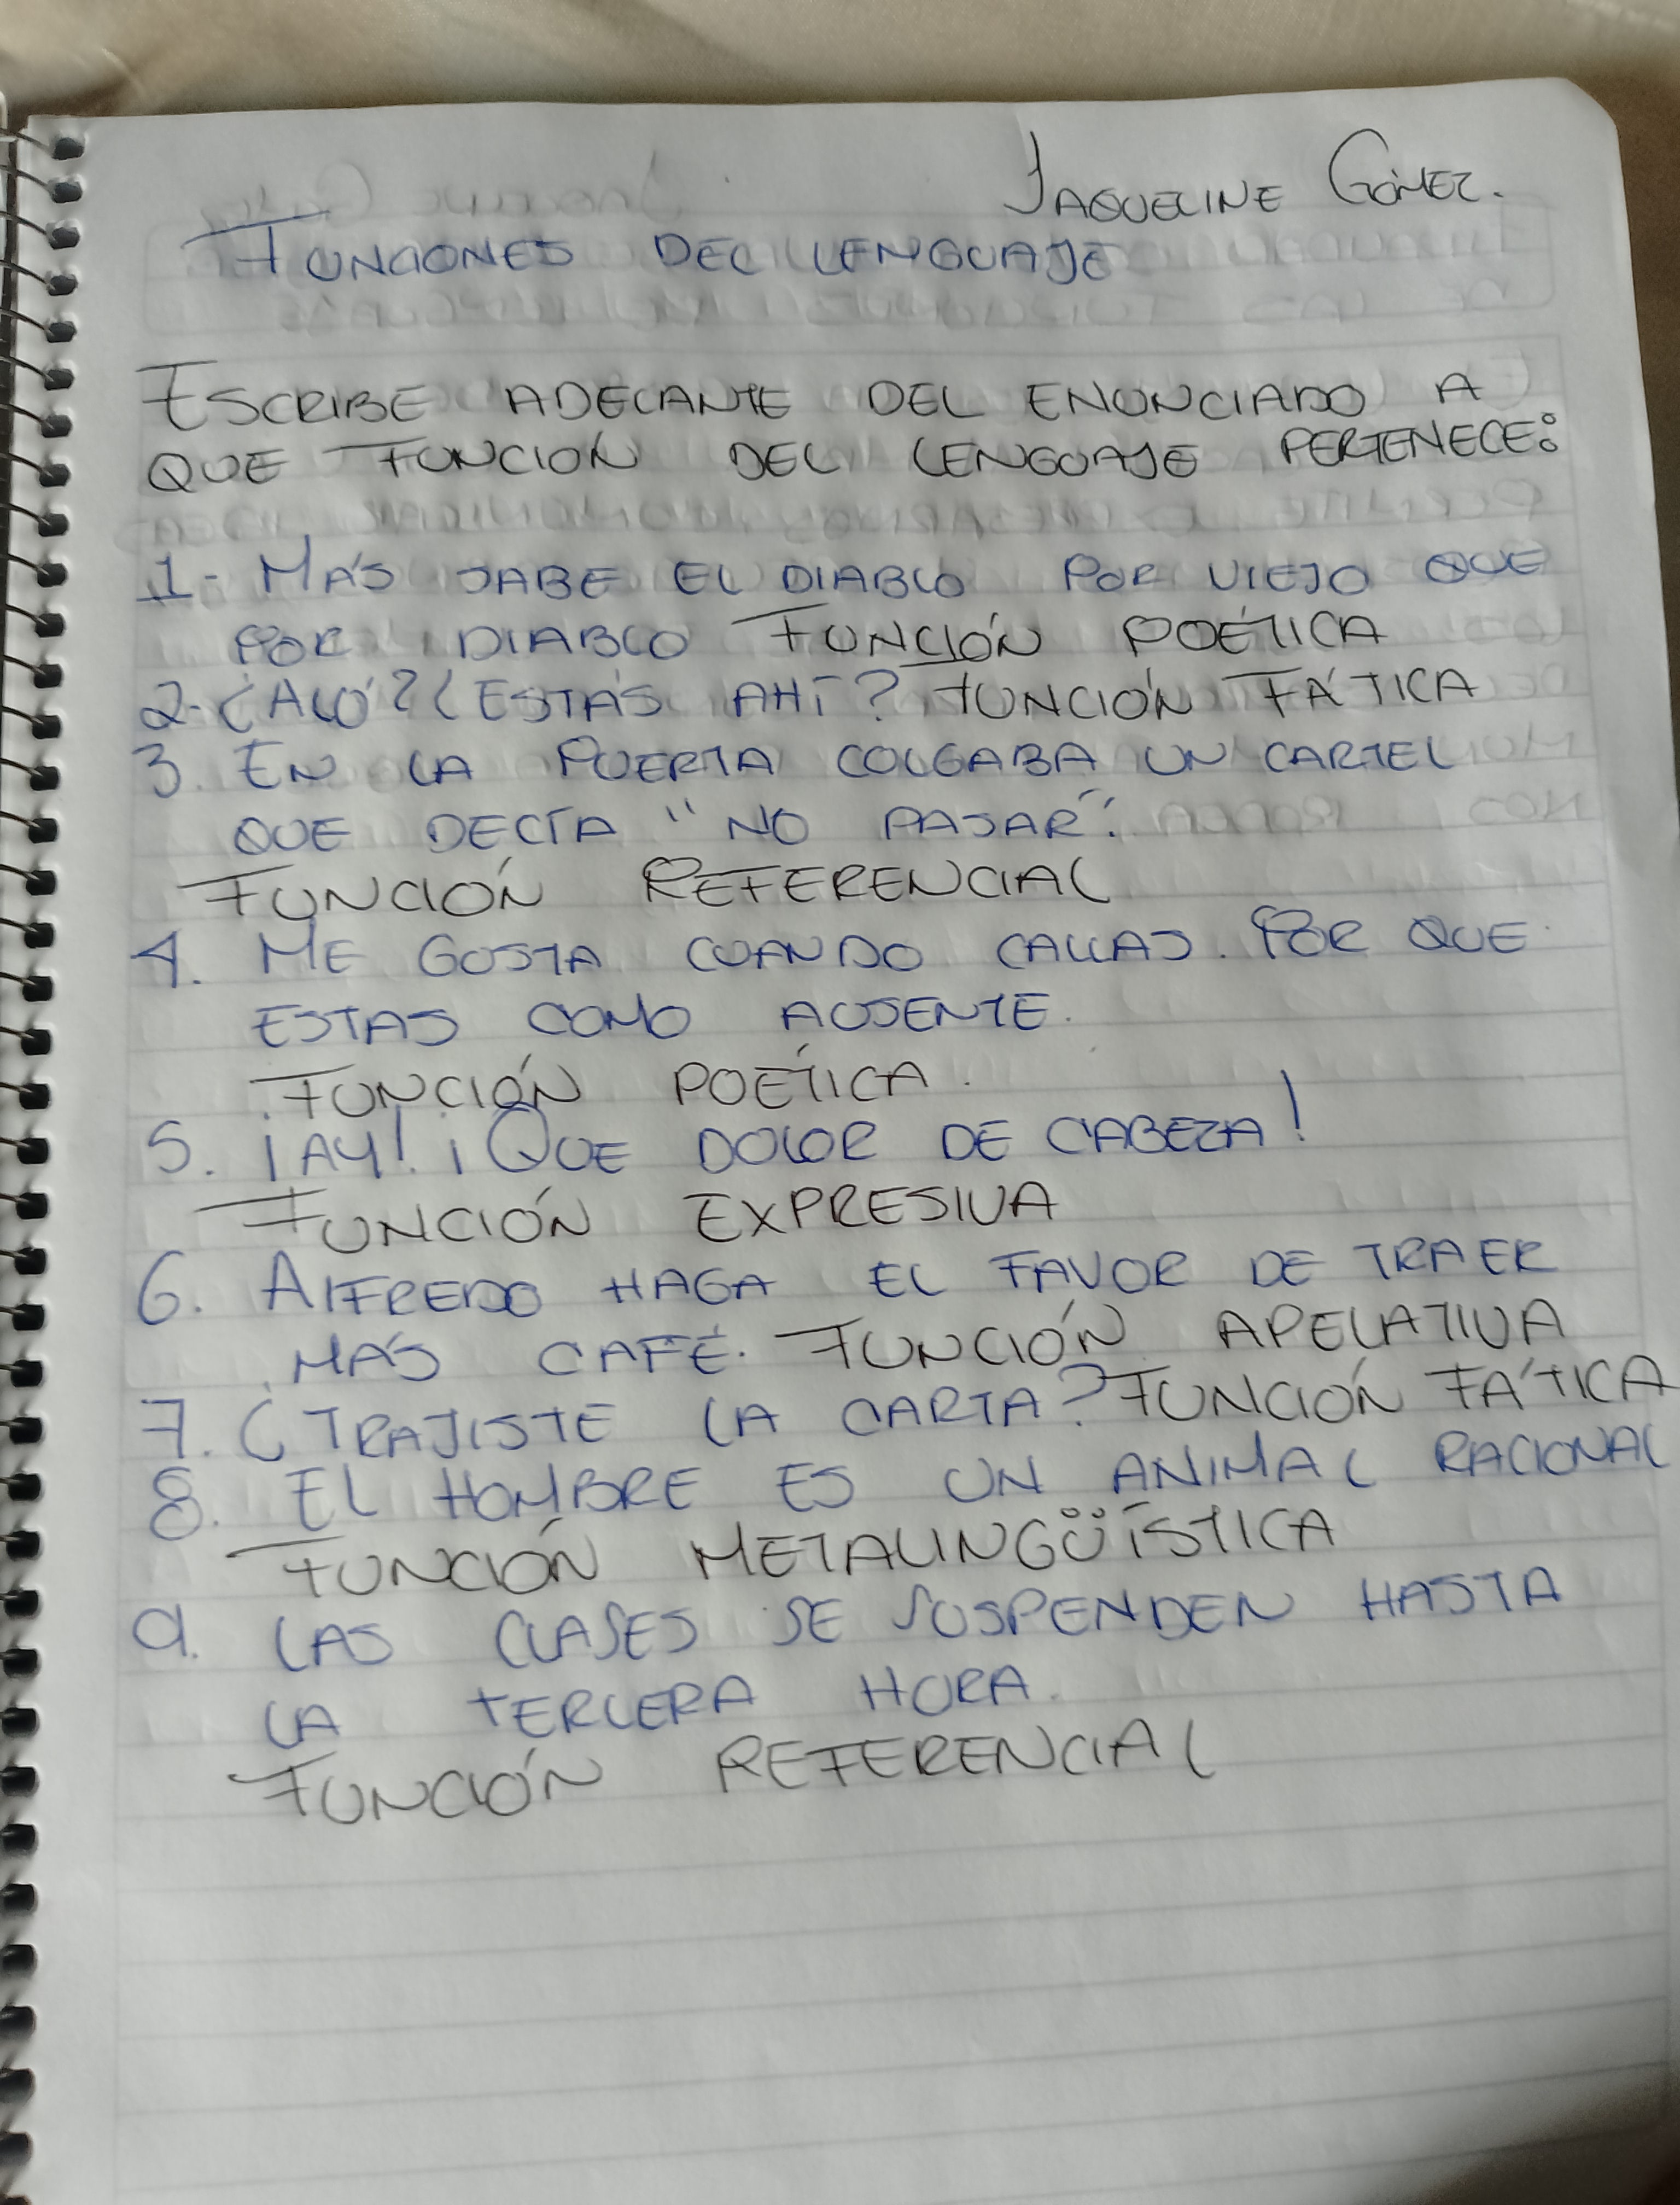 JAQUELINE GÓMEZ.
FUNCIONES DEL LENGUAJE
ESCRIBE ADELANTE DEL ENUNCIADO A
QUE FUNCIÓN DEL LENGUAJE PERTENECE:
1- MÁS SABE EL DIABLO POR VIEJO QUE
POR DIABLO FUNCIÓN POÉTICA
2-¿ALÓ?¿ESTÁS AHÍ? FUNCIÓN FÁTICA
3. EN LA PUERTA COLGABA UN CARTEL
QUE DECÍA "NO PASAR".
FUNCIÓN REFERENCIAL
4. ME GUSTA CUANDO CALLAS. POR QUE
ESTAS COMO AUSENTE.
FUNCIÓN POÉTICA.
5. ¡AY! ¡QUE DOLOR DE CABEZA!
FUNCIÓN EXPRESIVA
6. ALFREDO HAGA EL FAVOR DE TRAER
MÁS CAFÉ. FUNCIÓN APELATIVA
7. ¿TRAJISTE LA CARTA? FUNCIÓN FÁTICA
8. EL HOMBRE ES UN ANIMAL RACIONAL
FUNCIÓN METALINGÜÍSTICA
9. LAS CLASES SE SUSPENDEN HASTA
LA TERCERA HORA.
FUNCIÓN REFERENCIAL